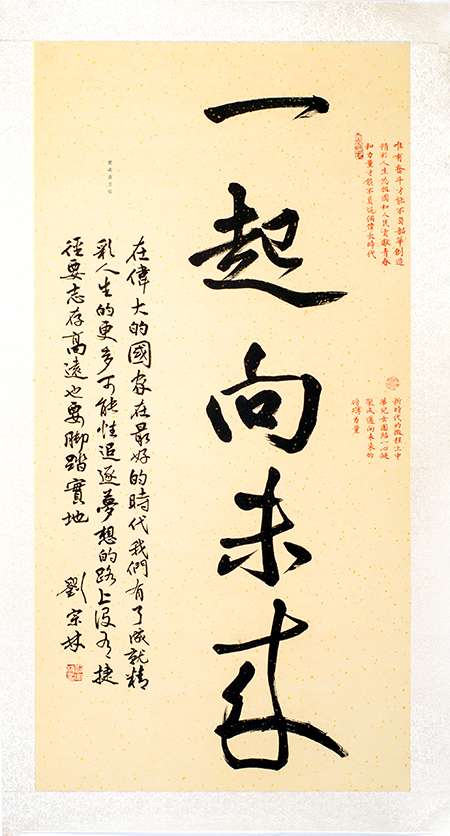 唯有奮斗才能不負韶華創造
精彩人生為祖國和人民貢獻青春
和力量才能不負這個偉大時代
新時代的徵程上中
華兒女團結一心凝
聚成邁向未來的
磅礴力量
一起向未来
在偉大的國家在最好的時代我們有了成就精
彩人生的更多可能性追逐夢想的路上没有捷
徑要志存高遠也要脚踏實地
劉宗林